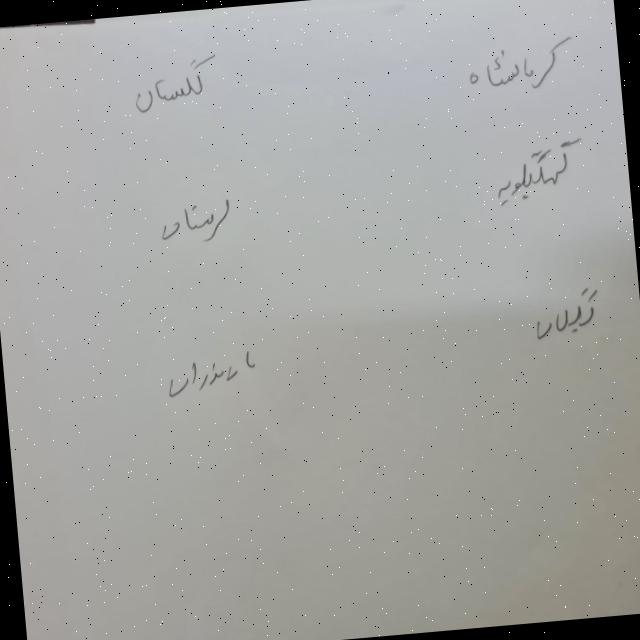 کرمانشاه
گلستان
کهگیلویه
لرستان
گیلان
مازندران